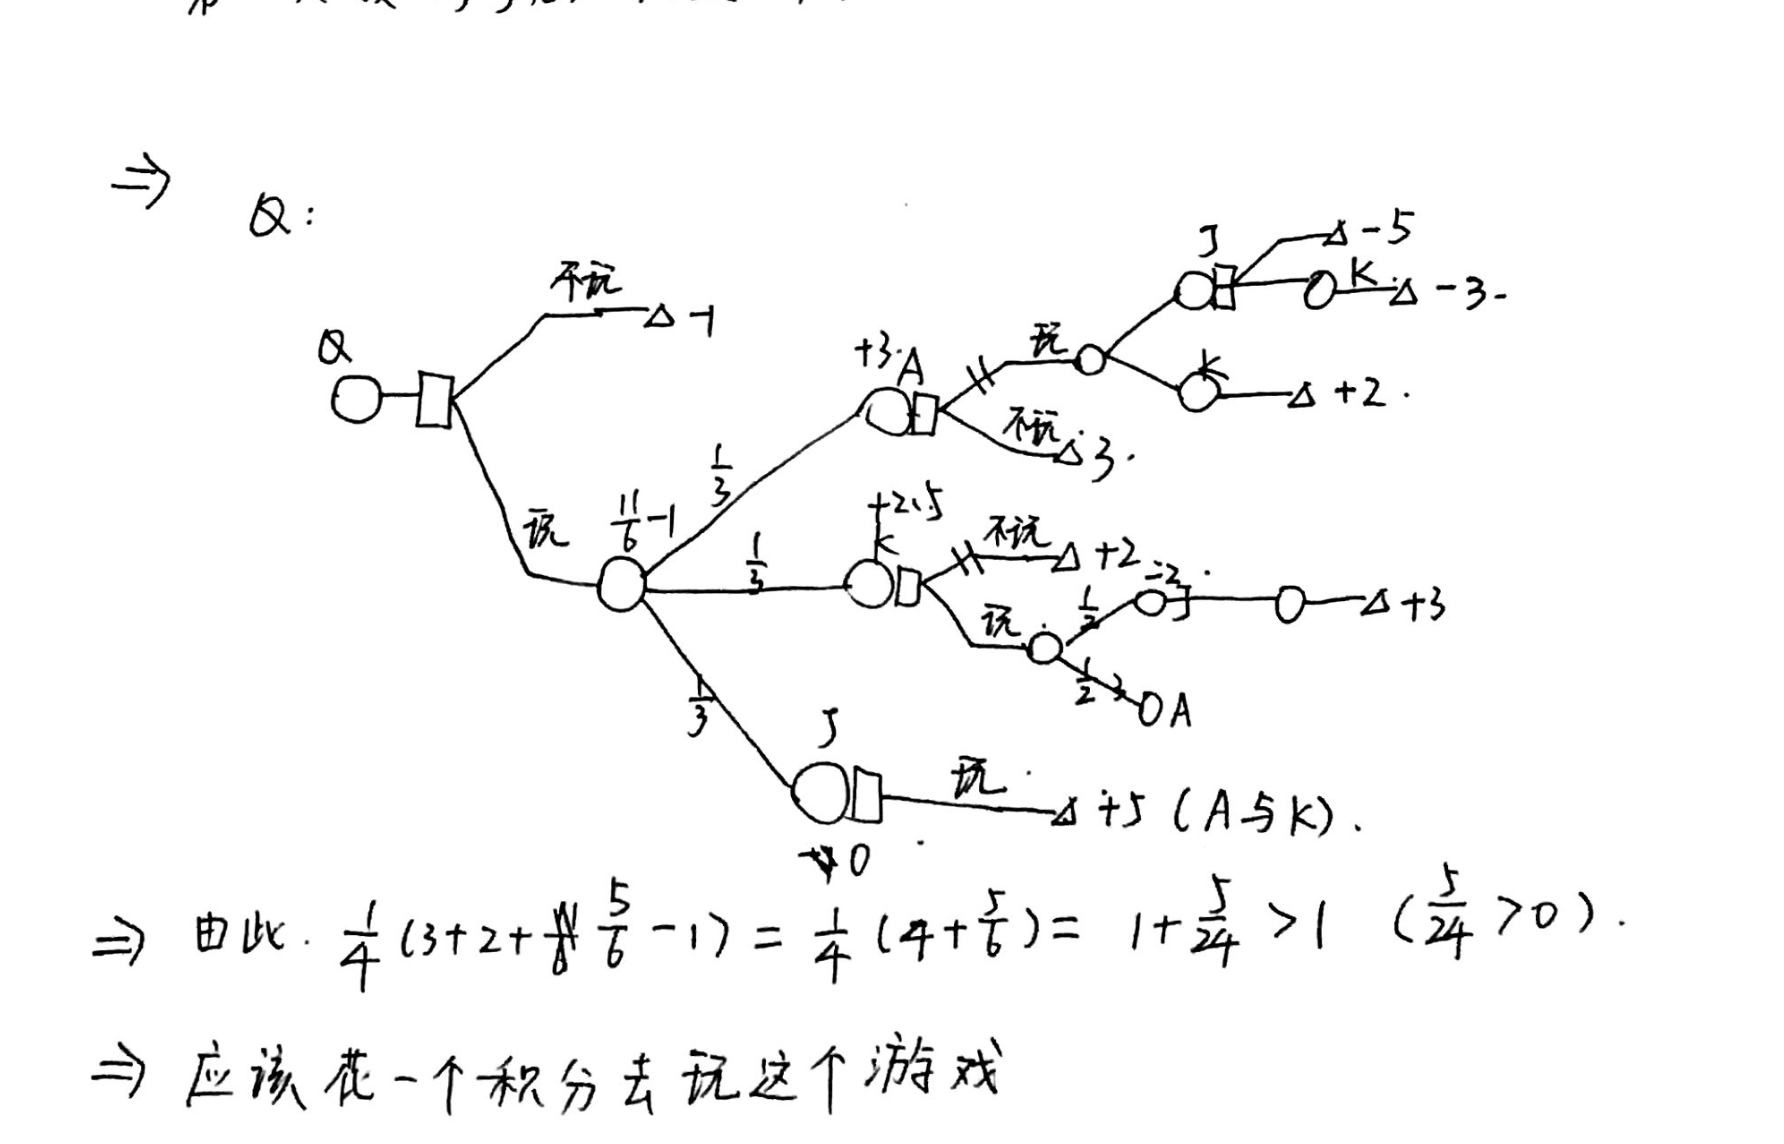 ⇒
Q:
不玩 △ -1
Q
玩
11/6 -1
1/3
1/3
1/3
+3. A
玩
J △ -5
K △ -3
K △ +2.
不玩 △ 3.
+2.5
K
不玩 △ +2
玩
1/2 -2 J △ +3
1/2 3 A
J
玩 △ +5 (A与K).
0
⇒ 由此. 1/4 (3+2+ 5/6 -1) = 1/4 (4+ 5/6) = 1+ 5/24 >1 (5/24 >0).
⇒ 应该花一个积分去玩这个游戏